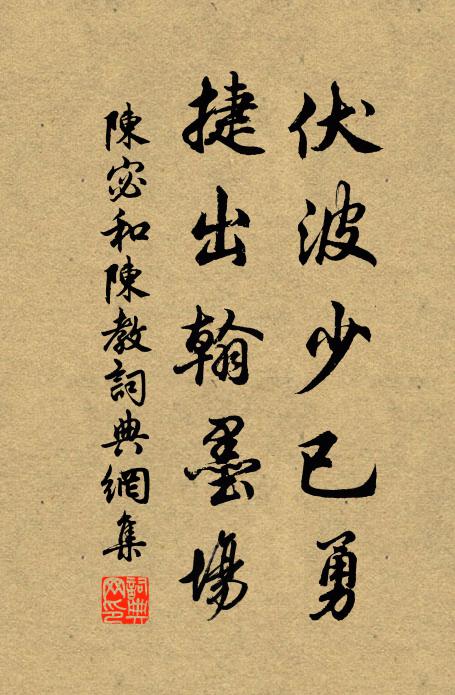 伏波少已勇
捷出翰墨場
陳宓和陳教詞典網集
詞典网印